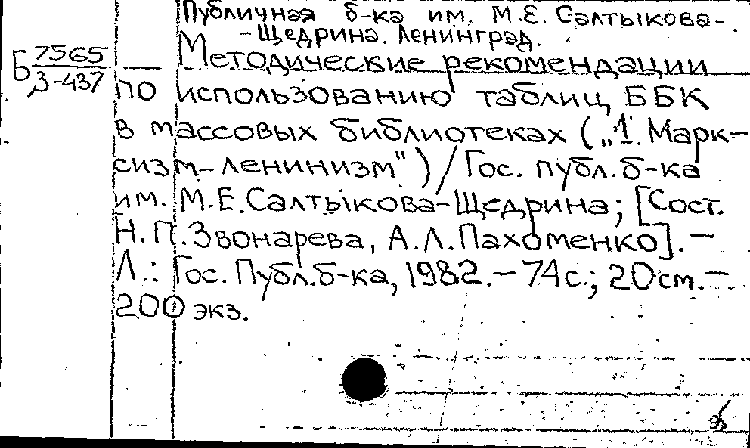 Публичная б-ка им. М.Е. Салтыкова-
-Щедрина. Ленинград.
Б 7565
З-437
Методические рекомендации
по использованию таблиц ББК
в массовых библиотеках („1. Марк-
сизм-ленинизм") / Гос. публ. б-ка
им. М.Е. Салтыкова-Щедрина; [Сост.
Н.П. Звонарева, А.Л. Пахоменко]. –
Л.: Гос. Публ. б-ка, 1982. – 74 с.; 20 см. –
200 экз.